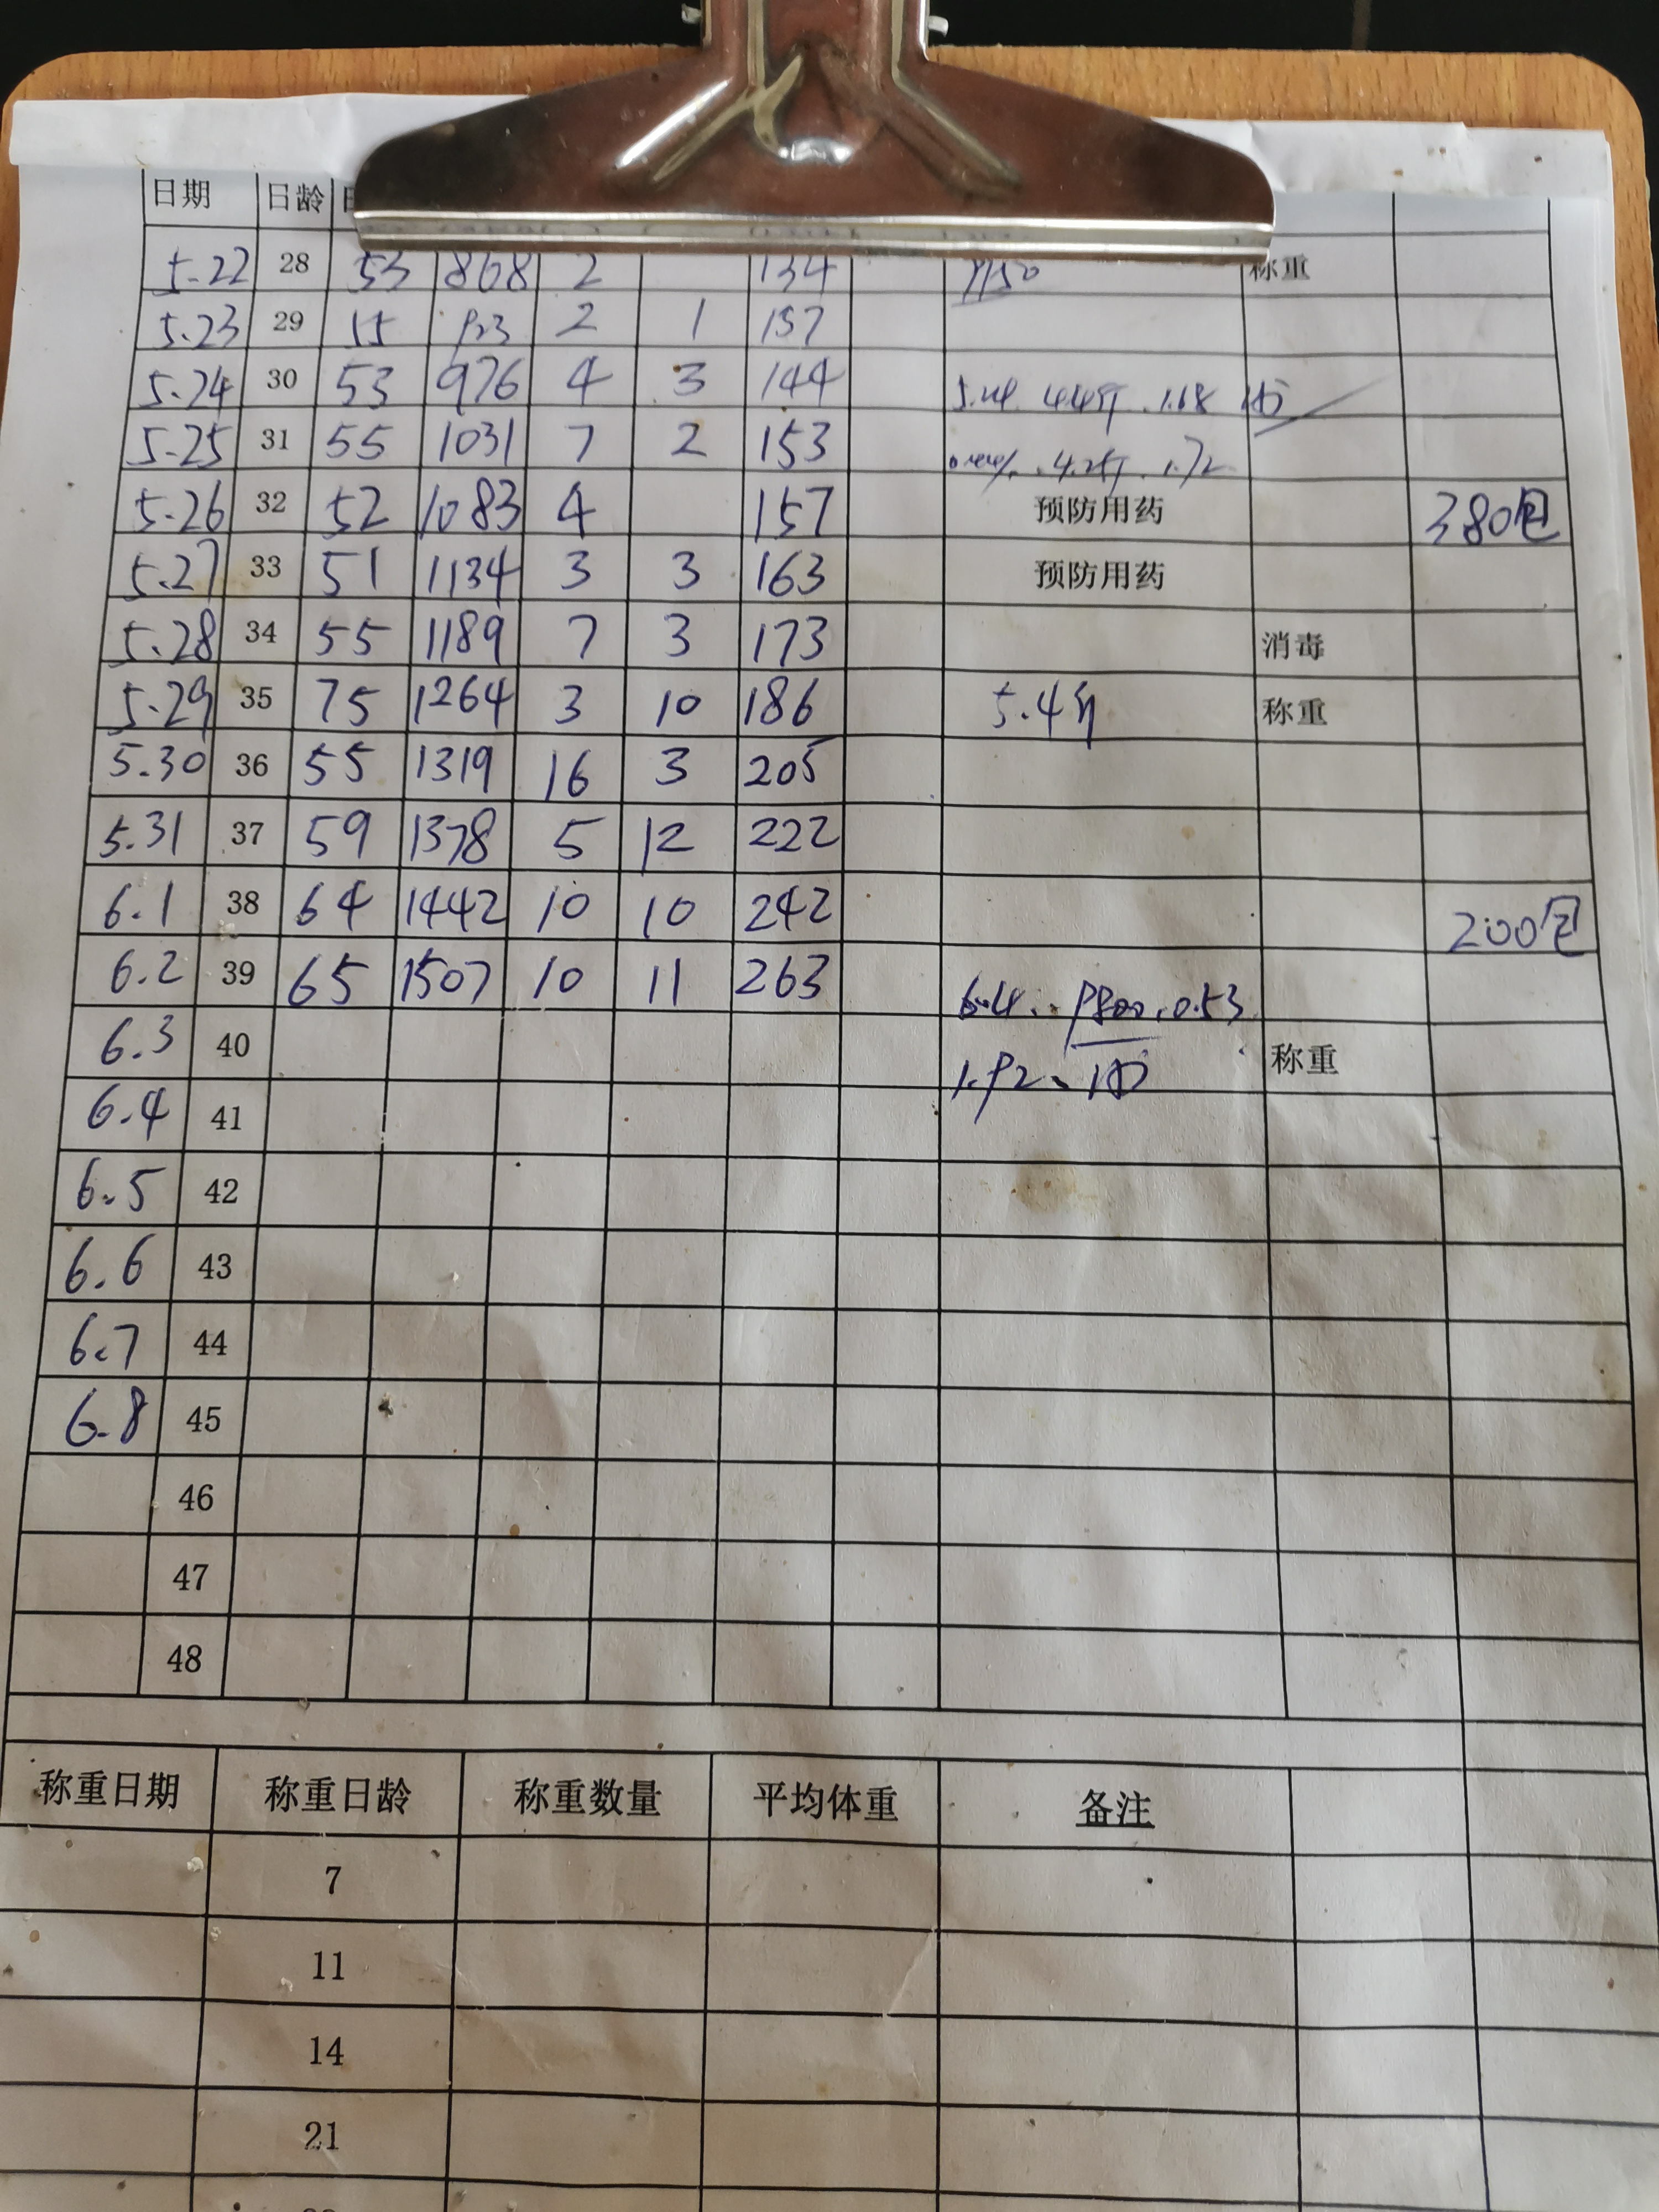 日期 日龄
5.22 28 53 868 2 134 称重
5.23 29 55 923 2 1 137
5.24 30 53 976 4 3 144
5.25 31 55 1031 7 2 153
5.26 32 52 1083 4 157 预防用药 380包
5.27 33 51 1134 3 3 163 预防用药
5.28 34 55 1189 7 3 173 消毒
5.29 35 75 1264 3 10 186 5.4斤 称重
5.30 36 55 1319 16 3 205
5.31 37 59 1378 5 12 222
6.1 38 64 1442 10 10 242 200包
6.2 39 65 1507 10 11 263
6.3 40 称重
6.4 41
6.5 42
6.6 43
6.7 44
6.8 45
46
47
48
称重日期 称重日龄 称重数量 平均体重 备注
7
11
14
21